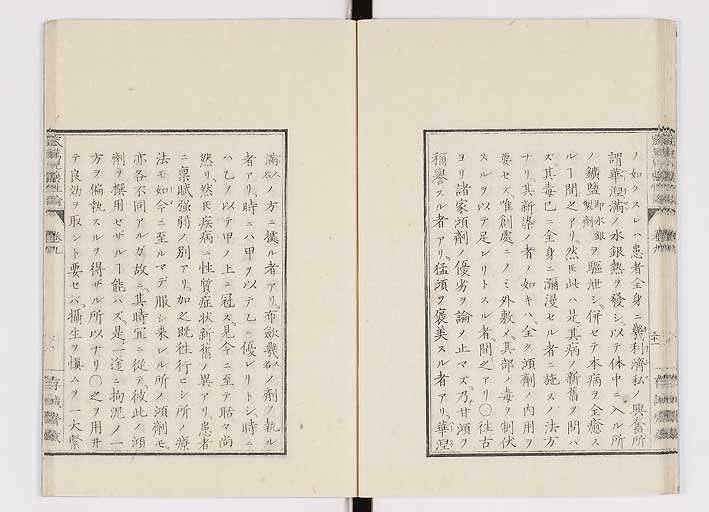 ノ如クスレハ患者全身ニ幾利濟私ノ興奮所
謂華湼満ノ水銀熱ヲ發シ以テ体中ニ入ル所
ノ鑛鹽即水銀製劑ヲ驅泄シ併セテ本病ヲ全癒ス
ルヿ間之アリ然𪜈此ハ是其病ノ新舊ヲ問ハ
ズ其毒已ニ全身ニ瀰漫セル者ニ施スノ法方
ナリ其新染ノ者ノ如キハ全ク湏劑ノ内用ヲ
要セズ唯創處ニノミ外敷〆其部ノ毒ヲ制伏
スルヲ以テ足レリトスル者間之アリ〇往古
ヨリ諸家湏劑ノ優劣ヲ論ノ止マズ乃甘湏ヲ
稱譽スル者アリ猛湏ヲ褒美スル者アリ華湼
満人名ノ方ニ據ル者アリ布歛幾人名ノ劑ヲ執ル
者アリ時ニハ甲ヲ以テ乙ニ優レリトシ時ニ
ハ乙ヲ以テ甲ノ上ニ冠ス見今ニ至テ貽々尚
然リ然𪜈疾病ニ性質症状新舊ノ異アリ患者
ニ稟賦强弱ノ別アリ加之既徃行ヒシ所ノ療
法モ如今ニ至ルマデ服シ来レル所ノ湏劑モ
亦各不同アルガ故ニ其時宜ニ從テ彼此ノ湏
劑ヲ撰用セザルヿ能ハズ是一途ニ拘泥ノ一
方ヲ偏執スルヲ得ザル所以ナリ〇之ヲ用井
テ良効ヲ取ント要セバ攝生ヲ愼ムヲ一大緊
卷九